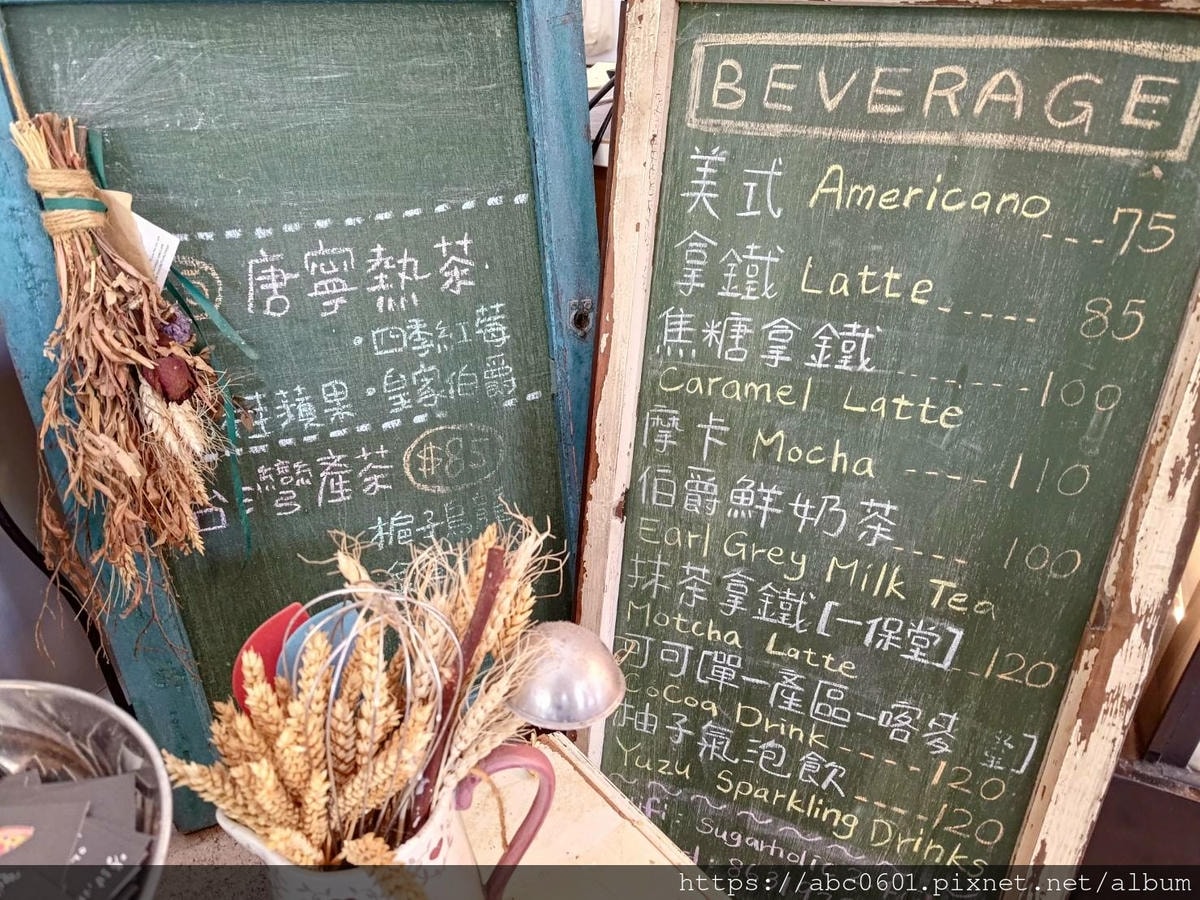 唐寧熱茶
·四季紅莓
蘋果·皇家伯爵
台灣產茶 $85
梔子烏
BEVERAGE
美式 Americano ---75
拿鐵 Latte ----- 85
焦糖拿鐵 ------100
Caramel Latte
摩卡 Mocha ---- 110
伯爵鮮奶茶 ---- 100
Earl Grey Milk Tea
抹茶拿鐵【一保堂】--120
Motcha Latte
可可[單一產區-喀麥隆]
CoCoa Drink ----120
柚子氣泡飲 ----120
Yuzu Sparkling Drinks
fi: Sugarholic
: 863
https://abc0601.pixnet.net/album